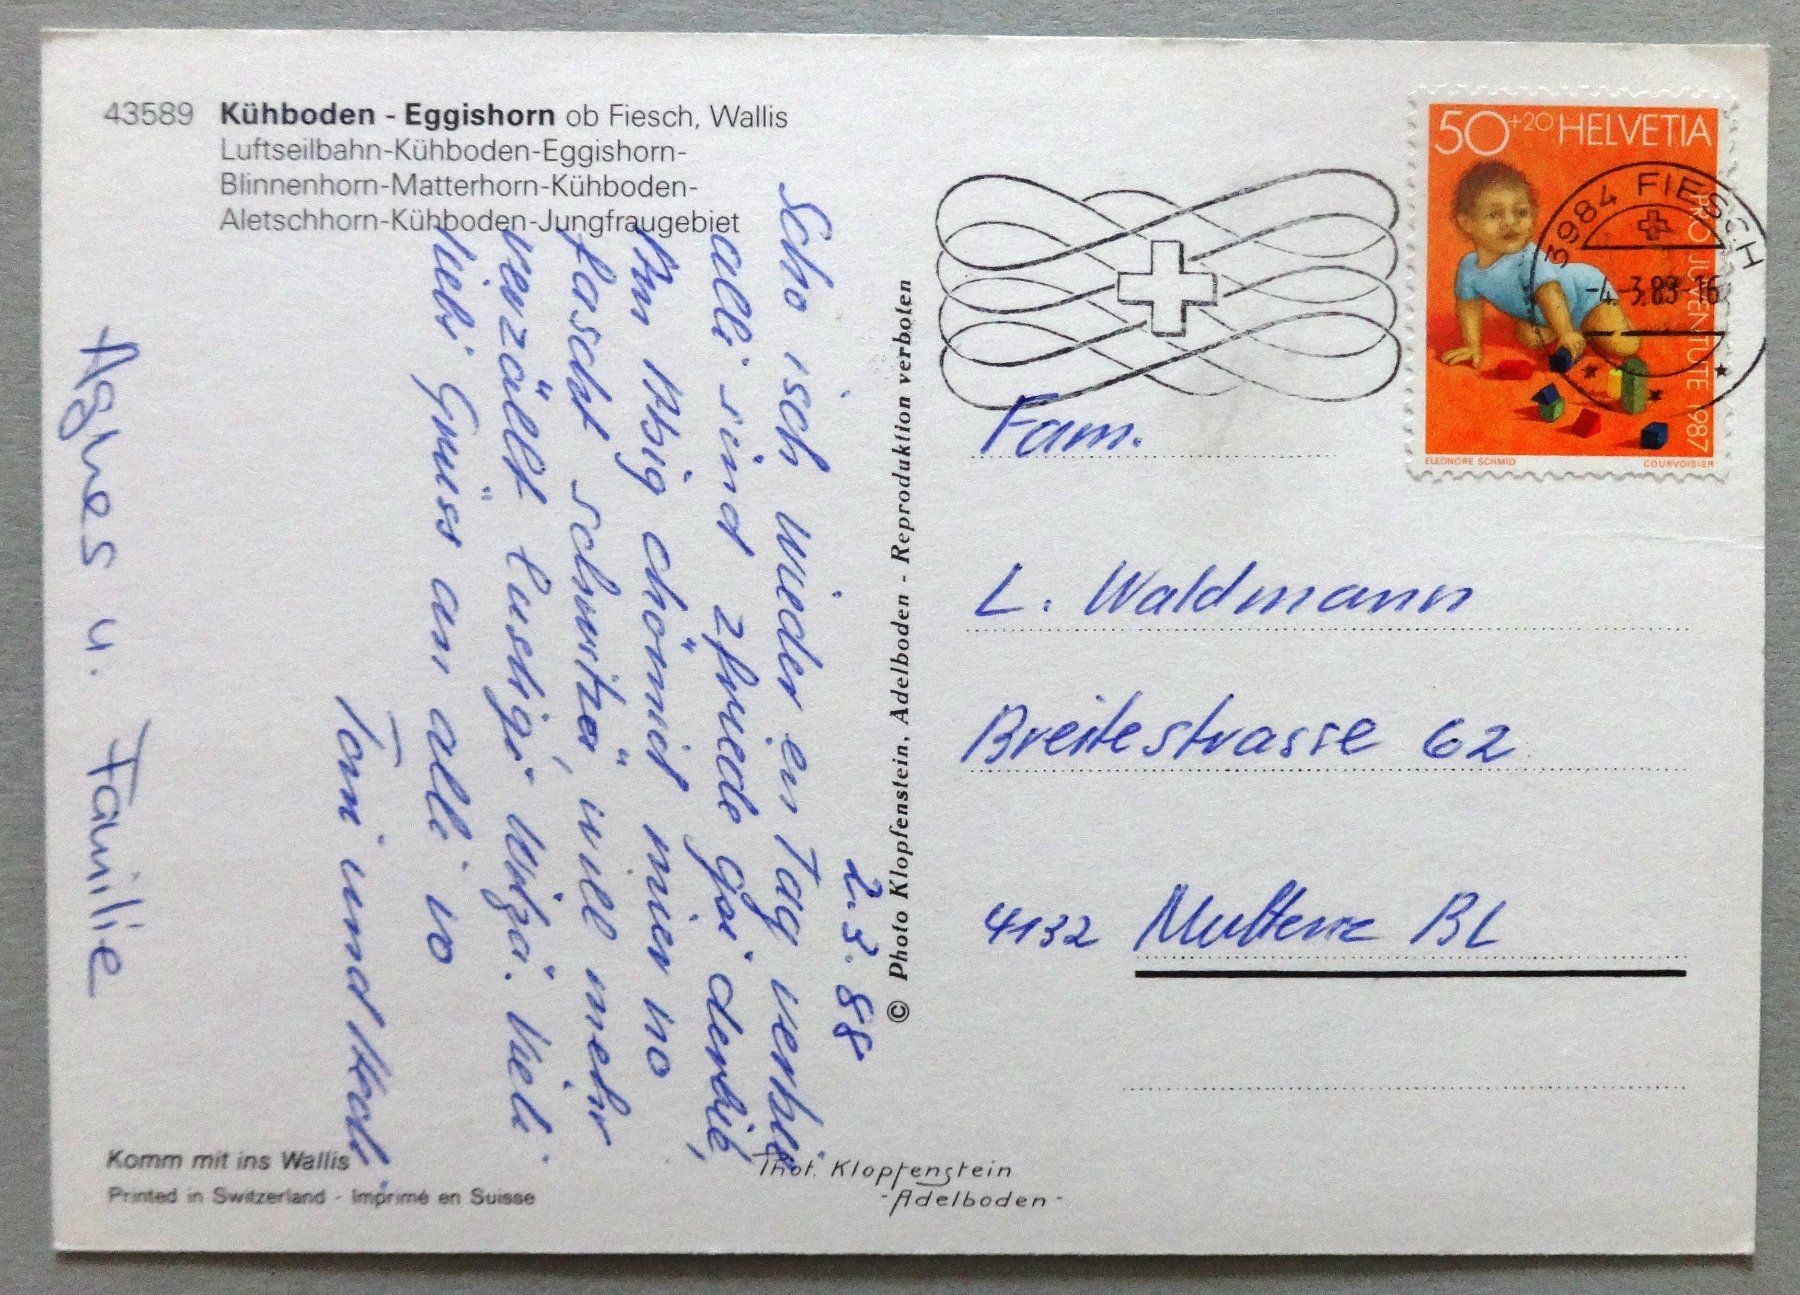 43589 Kühboden - Eggishorn ob Fiesch, Wallis
Luftseilbahn-Kühboden-Eggishorn-
Blinnenhorn-Matterhorn-Kühboden-
Aletschhorn-Kühboden-Jungfraugebiet
2.3.88
Scho isch wieder en Tag verbii
alli sind zfriede gsi derbii,
Am Abig chömid mier no
fascht schwitzä, will mehr
verzällt luschigi Witzä. Veli
liebi Grüss an alli vo
Toni und
Agnes u. Familie
Komm mit ins Wallis
Printed in Switzerland - Imprimé en Suisse
© Photo Klopfenstein, Adelboden - Reproduktion verboten
Phot. Klopfenstein
- Adelboden -
50+20 HELVETIA
PRO JUVENTUTE 1987
ELEONORE SCHMID COURVOISIER
3984 FIESCH
-4.-3.88-16
Fam.
L. Waldmann
Breitestrasse 62
4132 Muttenz BL